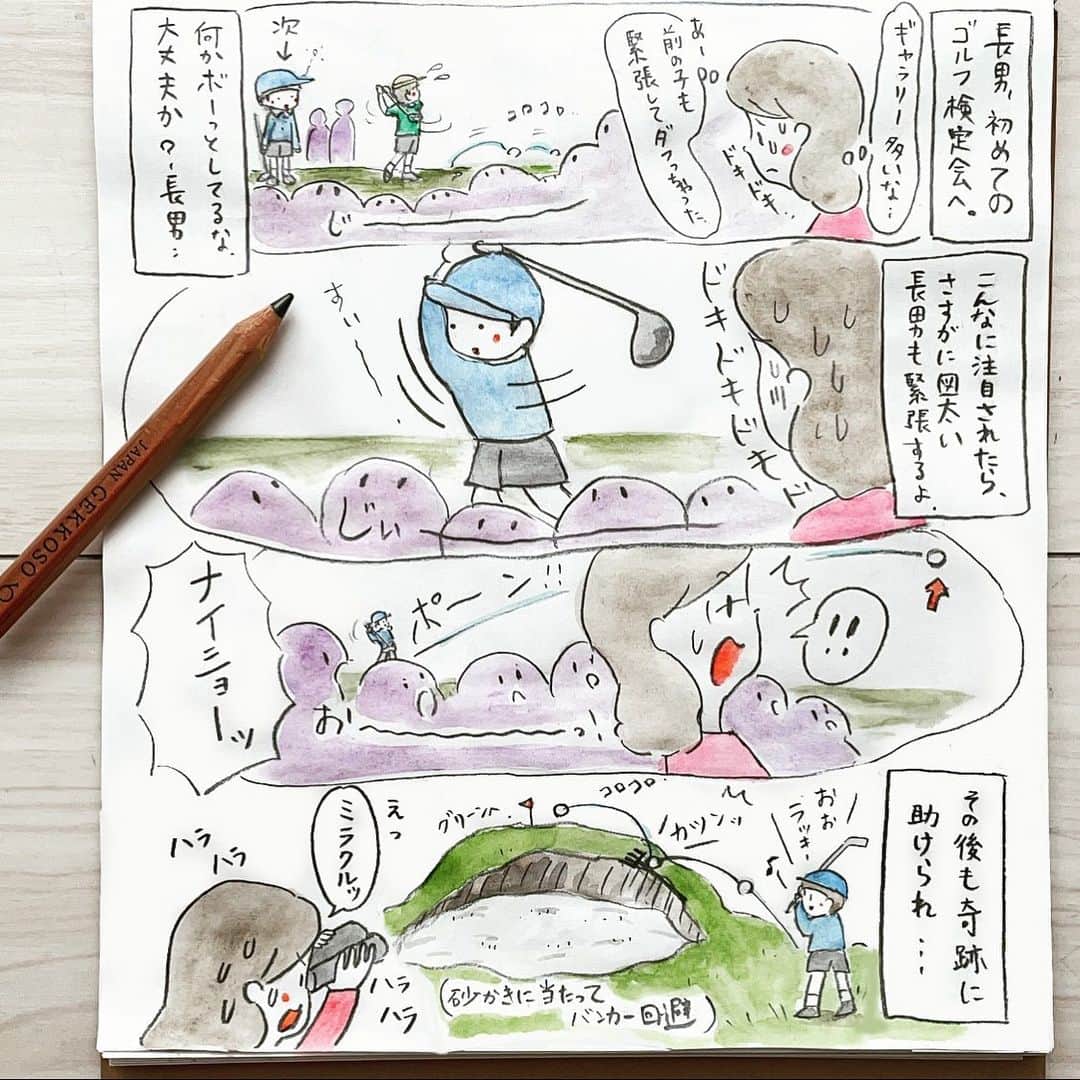 長男、初めての
ゴルフ検定会へ。
ギャラリー多いな…
ドキドキ..
あー
前の子も
緊張して、ダフっちゃった、
コロコロ..
次
↓
じーっ
何かボーっとしてるな、
大丈夫か?長男…
こんなに注目されたら、
さすがに図太い
長男も緊張するよ.
ドキドキドキドキド
すぃー
じぃ
JAPAN GEKKOSO
!!
ポーン!!
おーっ!
ナイショーッ
その後も奇跡に
助けられ…
おお
ラッキー
カツンッ
コロコロ
グリーン
えっ
ミラクルッ
ハラ
ハラ
ハラ
ハラ
(砂かきに当たって
バンカー回避)